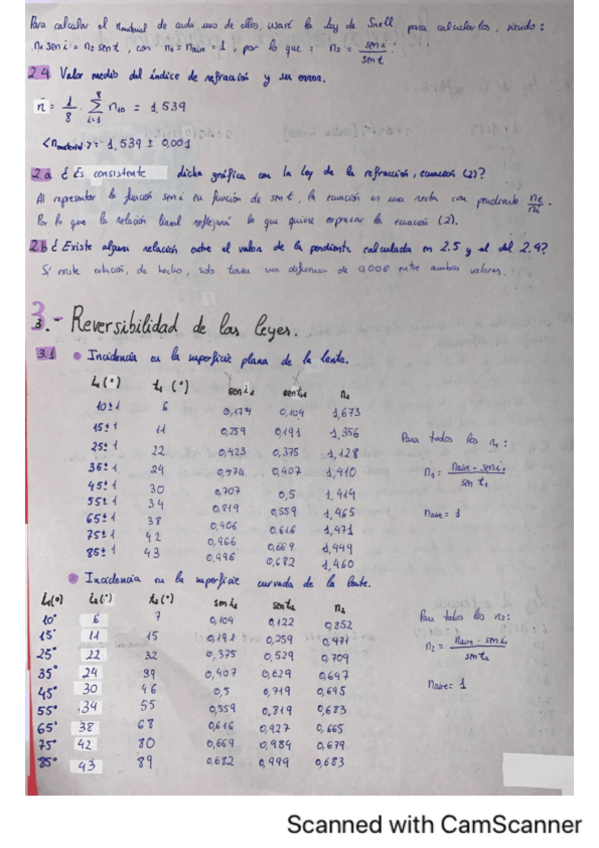 Para calcular el n material de cada uno de ellos, usaré la Ley de Snell para calcularlos, siendo:
n₁ sen i = n₂ sen t, con n₁ = naire = 1, por lo que: n₂ = sen i / sen t.
2.4 Valor medio del índice de refracción y su error.
n̄ = 1/8 · Σ(i=1, 8) n₁₀ = 1,539
<n material> = 1,539 ± 0,001
2.a ¿Es consistente dicha gráfica con la ley de la refracción, ecuación (2)?
Al representar la función sen i en función de sen t, la ecuación es una recta con pendiente n₂/n₁.
Por lo que la relación lineal reflejará lo que quiere expresar la ecuación (2).
2.b ¿Existe alguna relación entre el valor de la pendiente calculada en 2.5 y el del 2.4?
Sí existe relación, de hecho, solo tienen una diferencia de 0,006 entre ambos valores.
3.- Reversibilidad de las leyes.
3.1 • Incidencia en la superficie plana de la lente.
i₁(°) t₁(°) sen i₁ sen t₁ n₁
10±1 6 0,174 0,104 1,673
15±1 11 0,259 0,191 1,356
25±1 22 0,423 0,375 1,128
35±1 24 0,574 0,407 1,410
45±1 30 0,707 0,5 1,414
55±1 34 0,819 0,559 1,465
65±1 38 0,906 0,616 1,471
75±1 42 0,966 0,669 1,449
85±1 43 0,996 0,682 1,460
Para todos los n₁:
n₁ = naire · sen i₁ / sen t₁
naire = 1
• Incidencia en la superficie curvada de la lente.
i₁(°) i₂(°) t₂(°) sen i₂ sen t₂ n₂
10° 6 7 0,104 0,122 0,852
15° 11 15 0,191 0,259 0,471
25° 22 32 0,375 0,529 0,709
35° 24 39 0,407 0,629 0,647
45° 30 46 0,5 0,719 0,695
55° 34 55 0,559 0,819 0,683
65° 38 68 0,616 0,927 0,665
75° 42 80 0,669 0,984 0,679
85° 43 89 0,682 0,999 0,683
Para todos los n₂:
n₂ = naire · sen i₂ / sen t₂
naire = 1
Scanned with CamScanner